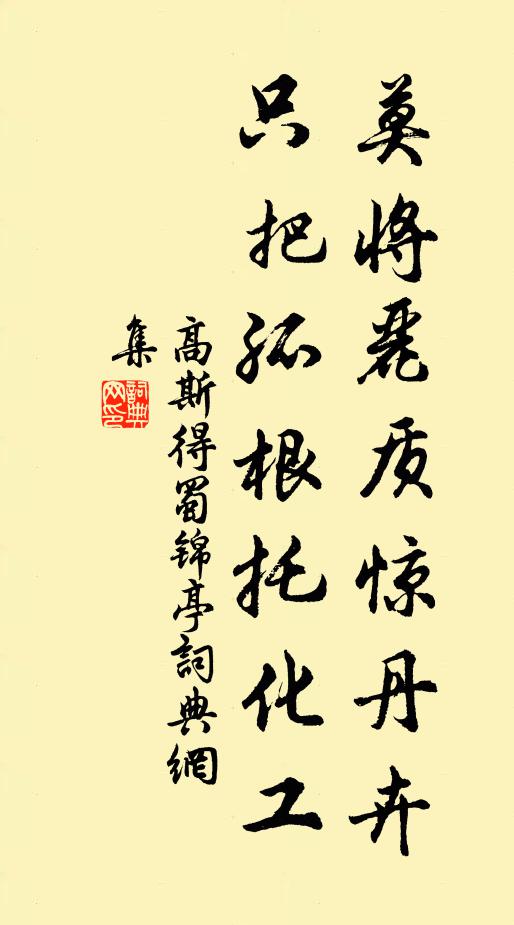 莫将丽质惊丹卉
只把孤根托化工
高斯得蜀锦亭詞典網
集
詞典网印